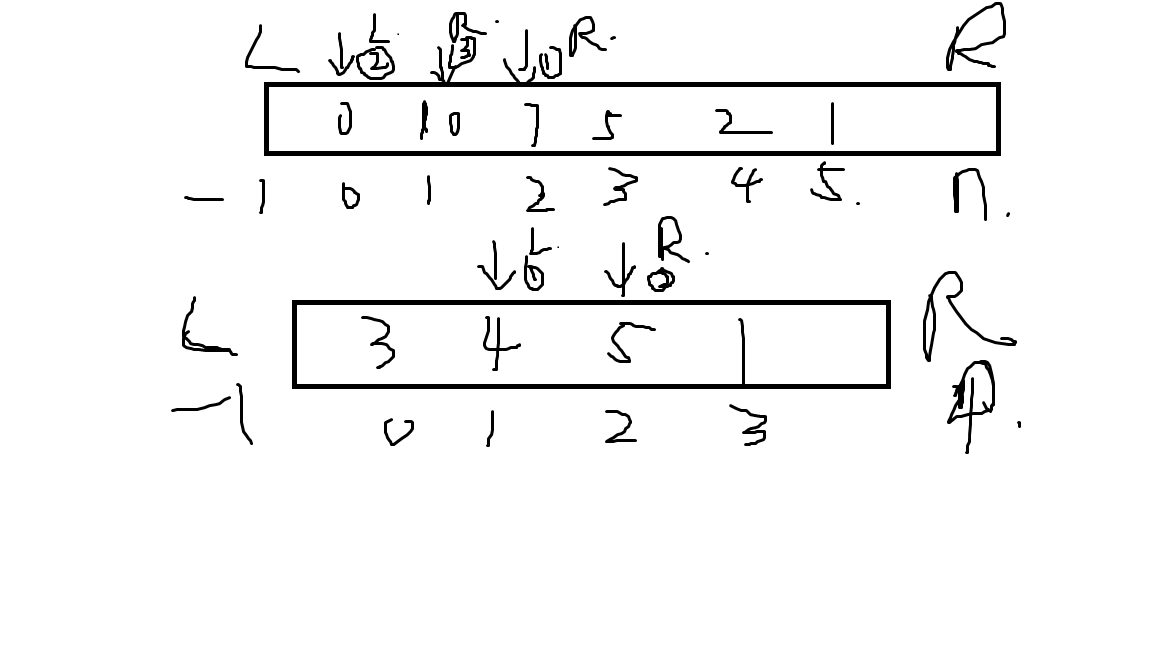 L ↓ L ② ↓ R ③ ↓ ① R. R
0 10 7 5 2 1
-1 0 1 2 3 4 5. n.
↓ L ① ↓ R ②.
L 3 4 5 1 R
-1 0 1 2 3 4.